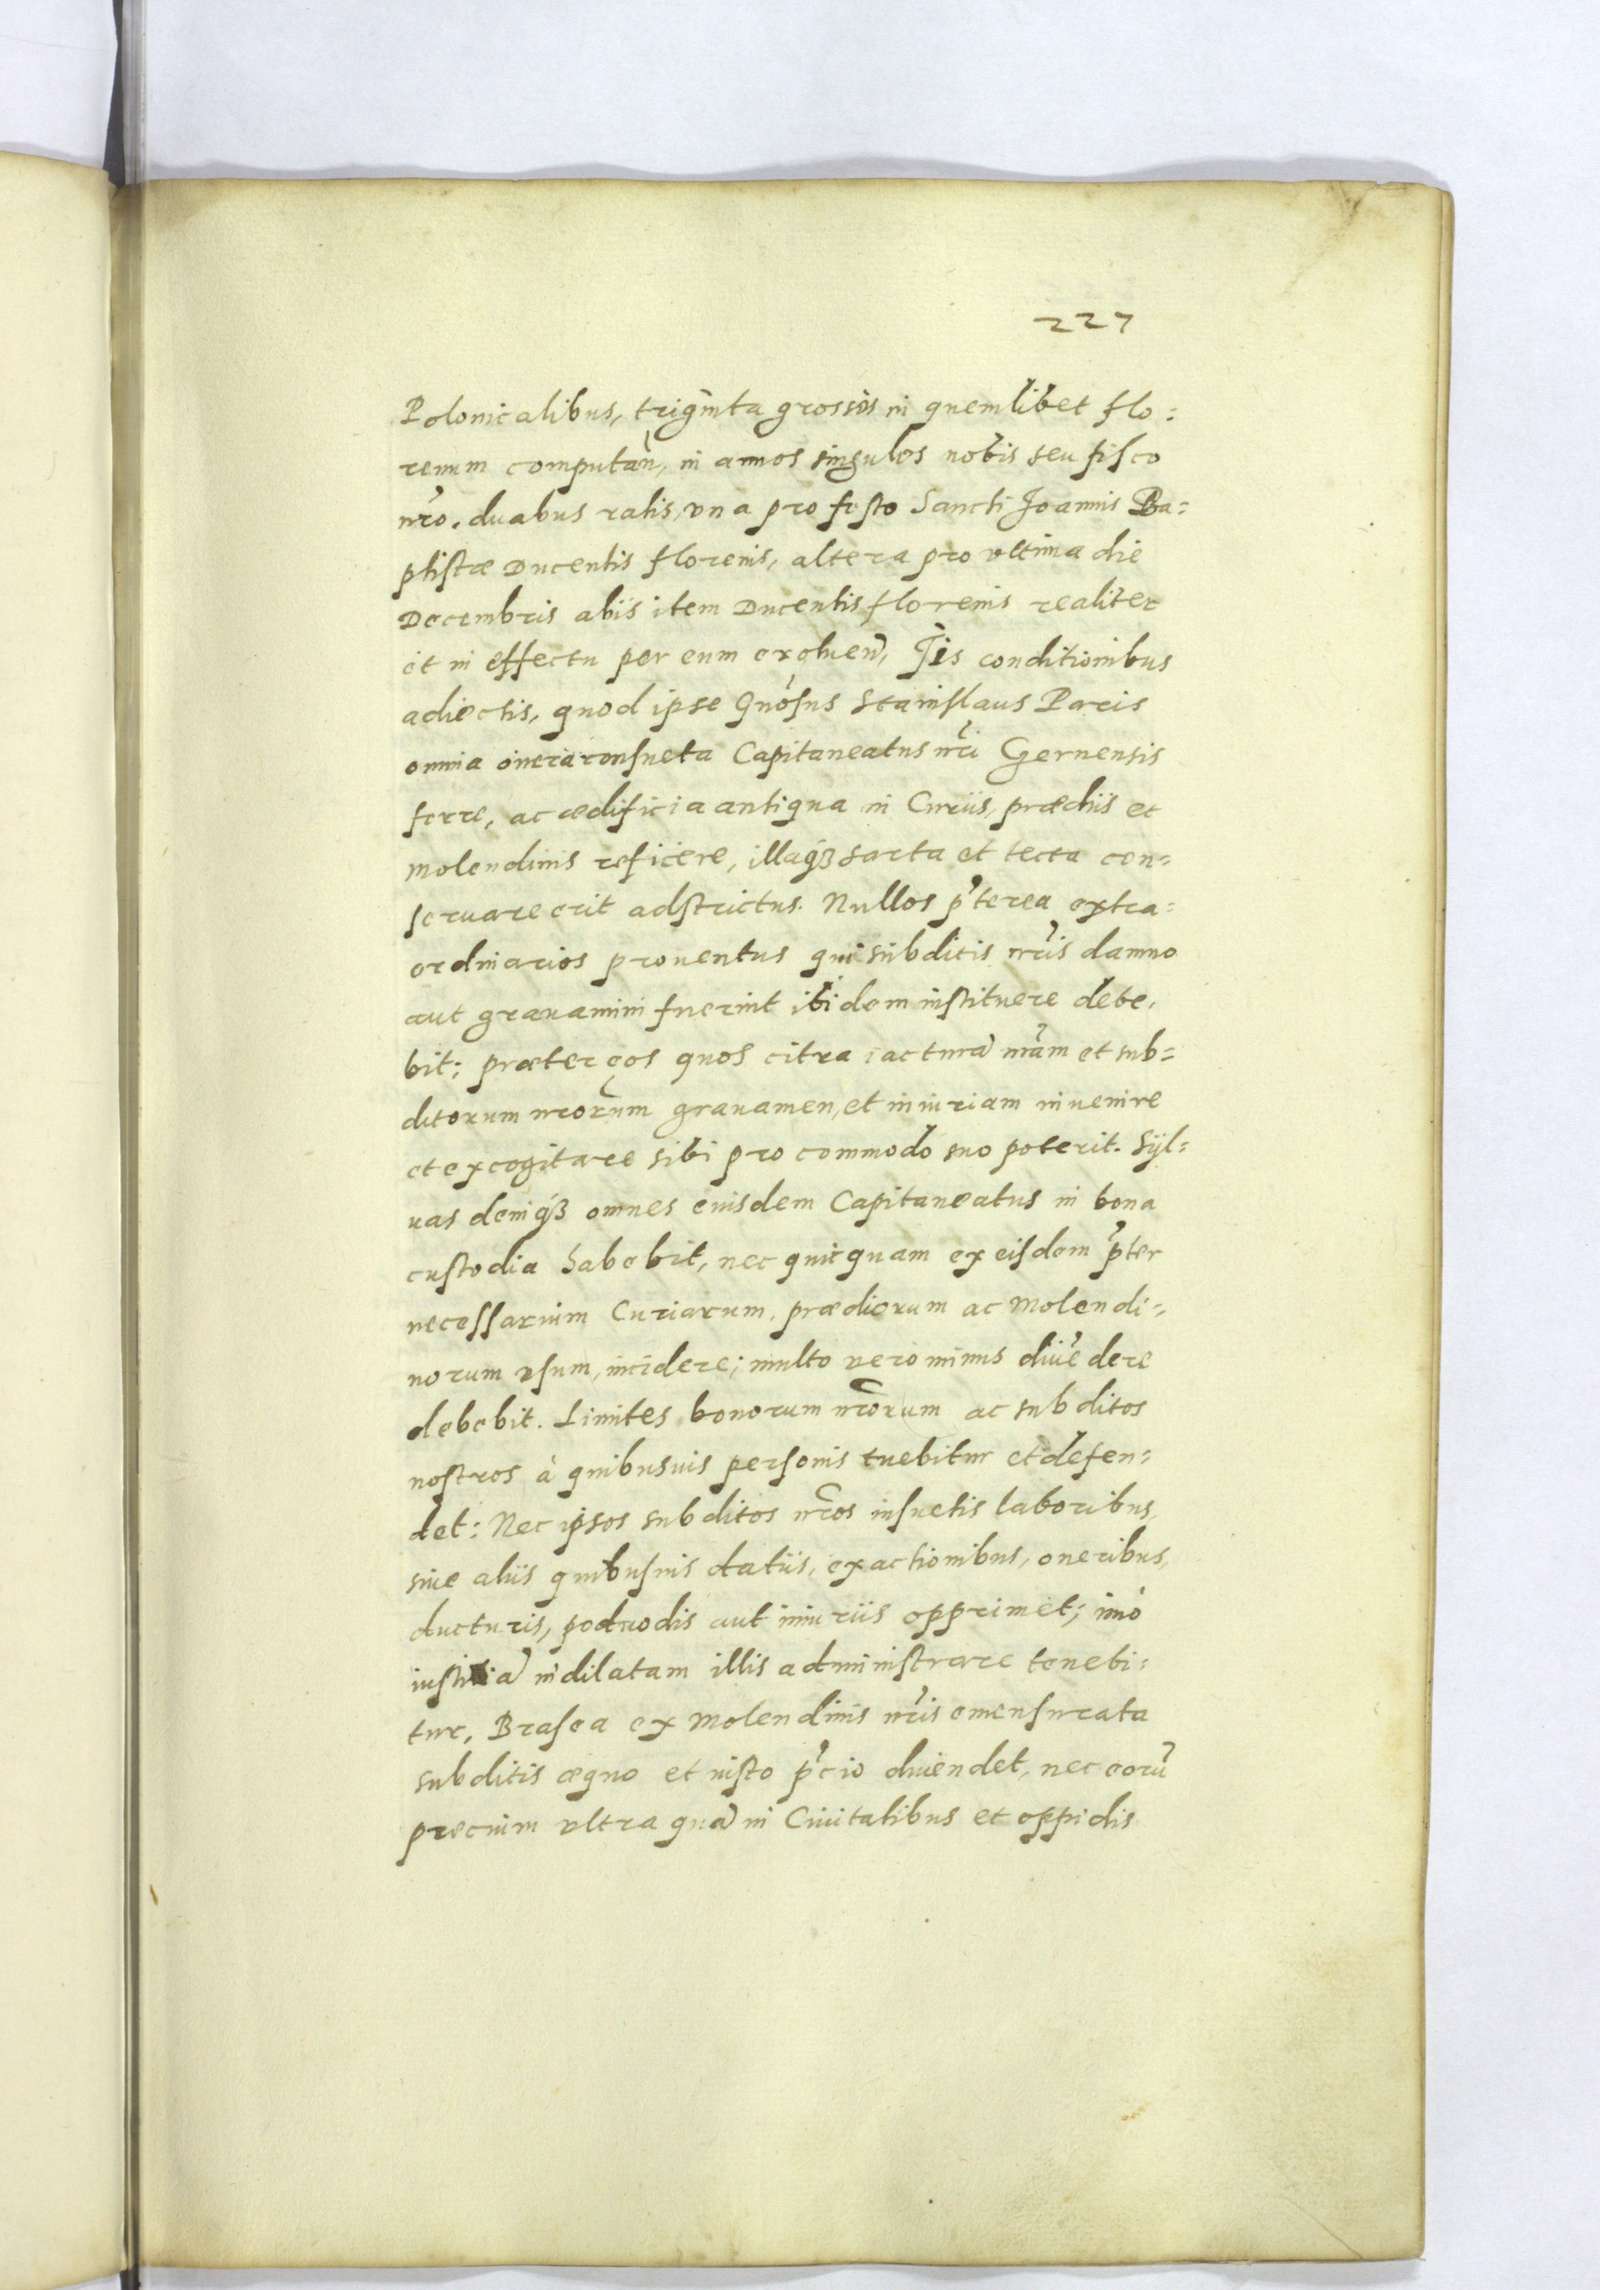 227
Polonicalibus, triginta grossos in quemlibet flo=
renum computan̄, in annos singulos nobis seu fisco
nr̃o. duabus ratis, vna pro festo Sancti Joannis Ba=
ptistæ Ducentis florenis, altera pro vltima die
Decembris aliis item Ducentis florenis realiter
et in effectu per eum exoluen̄, Iis conditionibus
adiectis, quod ipse Gnōsus Stanislaus Paris
omnia onera consueta Capitaneatus nr̃i Gernensis
ferre, ac ædificia antiqua in Curiis, prædiis et
molendinis reficere, illaqꝫ sarta et tecta con=
seruare erit adstrictus. Nullos p̃terea extra=
ordinarios prouentus qui subditis nr̃is damno
aut grauamini fuerint ibidem instituere debe,
bit; præter eos quos citra iacturā nr̃am et sub=
ditorum nr̃orum grauamen, et iniuriam inuenire
et excogitare sibi pro commodo suo poterit. Syl=
uas deniqꝫ omnes eiusdem Capitaneatus in bona
custodia habebit, nec quicquam ex eisdem p̃ter
necessarium Curiarum, prædiorum ac Molendi=
norum vsum, incidere; multo vero minus diuēdere
debebit. Limites bonorum nr̃orum ac subditos
nostros à quibusuis personis tuebitur et defen=
det: Nec ipsos subditos nr̃os insuetis laboribus,
siue aliis quibusuis datiis, exactionibus, oneribus,
ducturis, podwodis aut iniuriis opprimet; imò
iustitiā indilatam illis administrare tenebi=
tur, Brasea ex Molendinis nr̃is emensurata
subditis æquo et iusto p̃cio diuendet, nec eorū
precium vltra quā in Ciuitatibus et oppidis